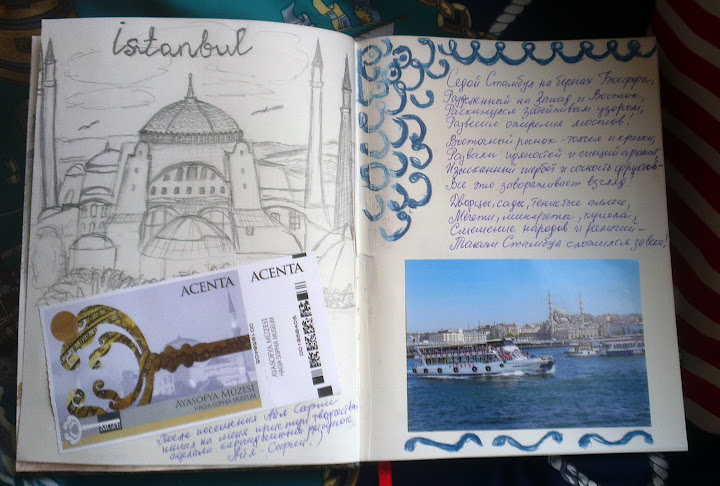 istanbul
ACENTA
ACENTA
AYASOFYA MÜZESİ
HAGIA SOPHIA MUSEUM
AYASOFYA MÜZESİ
HAGIA SOPHIA MUSEUM
После посещения Айя Софии
напал на меня приступ творчества,
сделала карандашный рисунок
Айя-Софии!
Седой Стамбул на берегах Босфора,
Разделенный на Запад и Восток,
Раскинулся затейливым узором,
Развесил ожерелья мостов.
Восточный рынок - толчея и крики,
Развалы пряностей и специй аромат,
Изысканный щербет и сочность фруктов -
Все это завораживает взгляд.
Дворцы, сады, тенистые аллеи,
Мечети, минареты, купола,
Смешение народов и религий -
Таким Стамбул сложился за века!